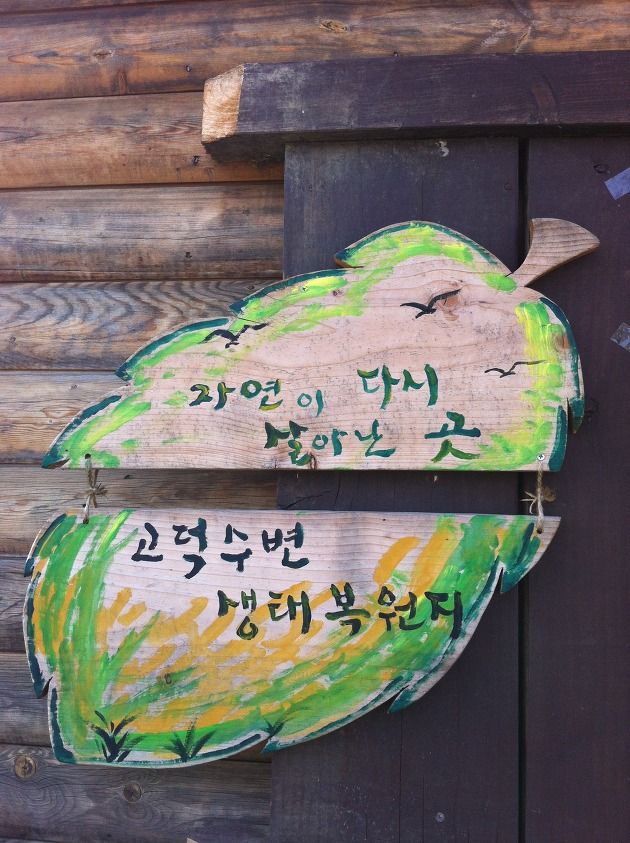 자연이 다시
살아난 곳
고덕수변
생태복원지